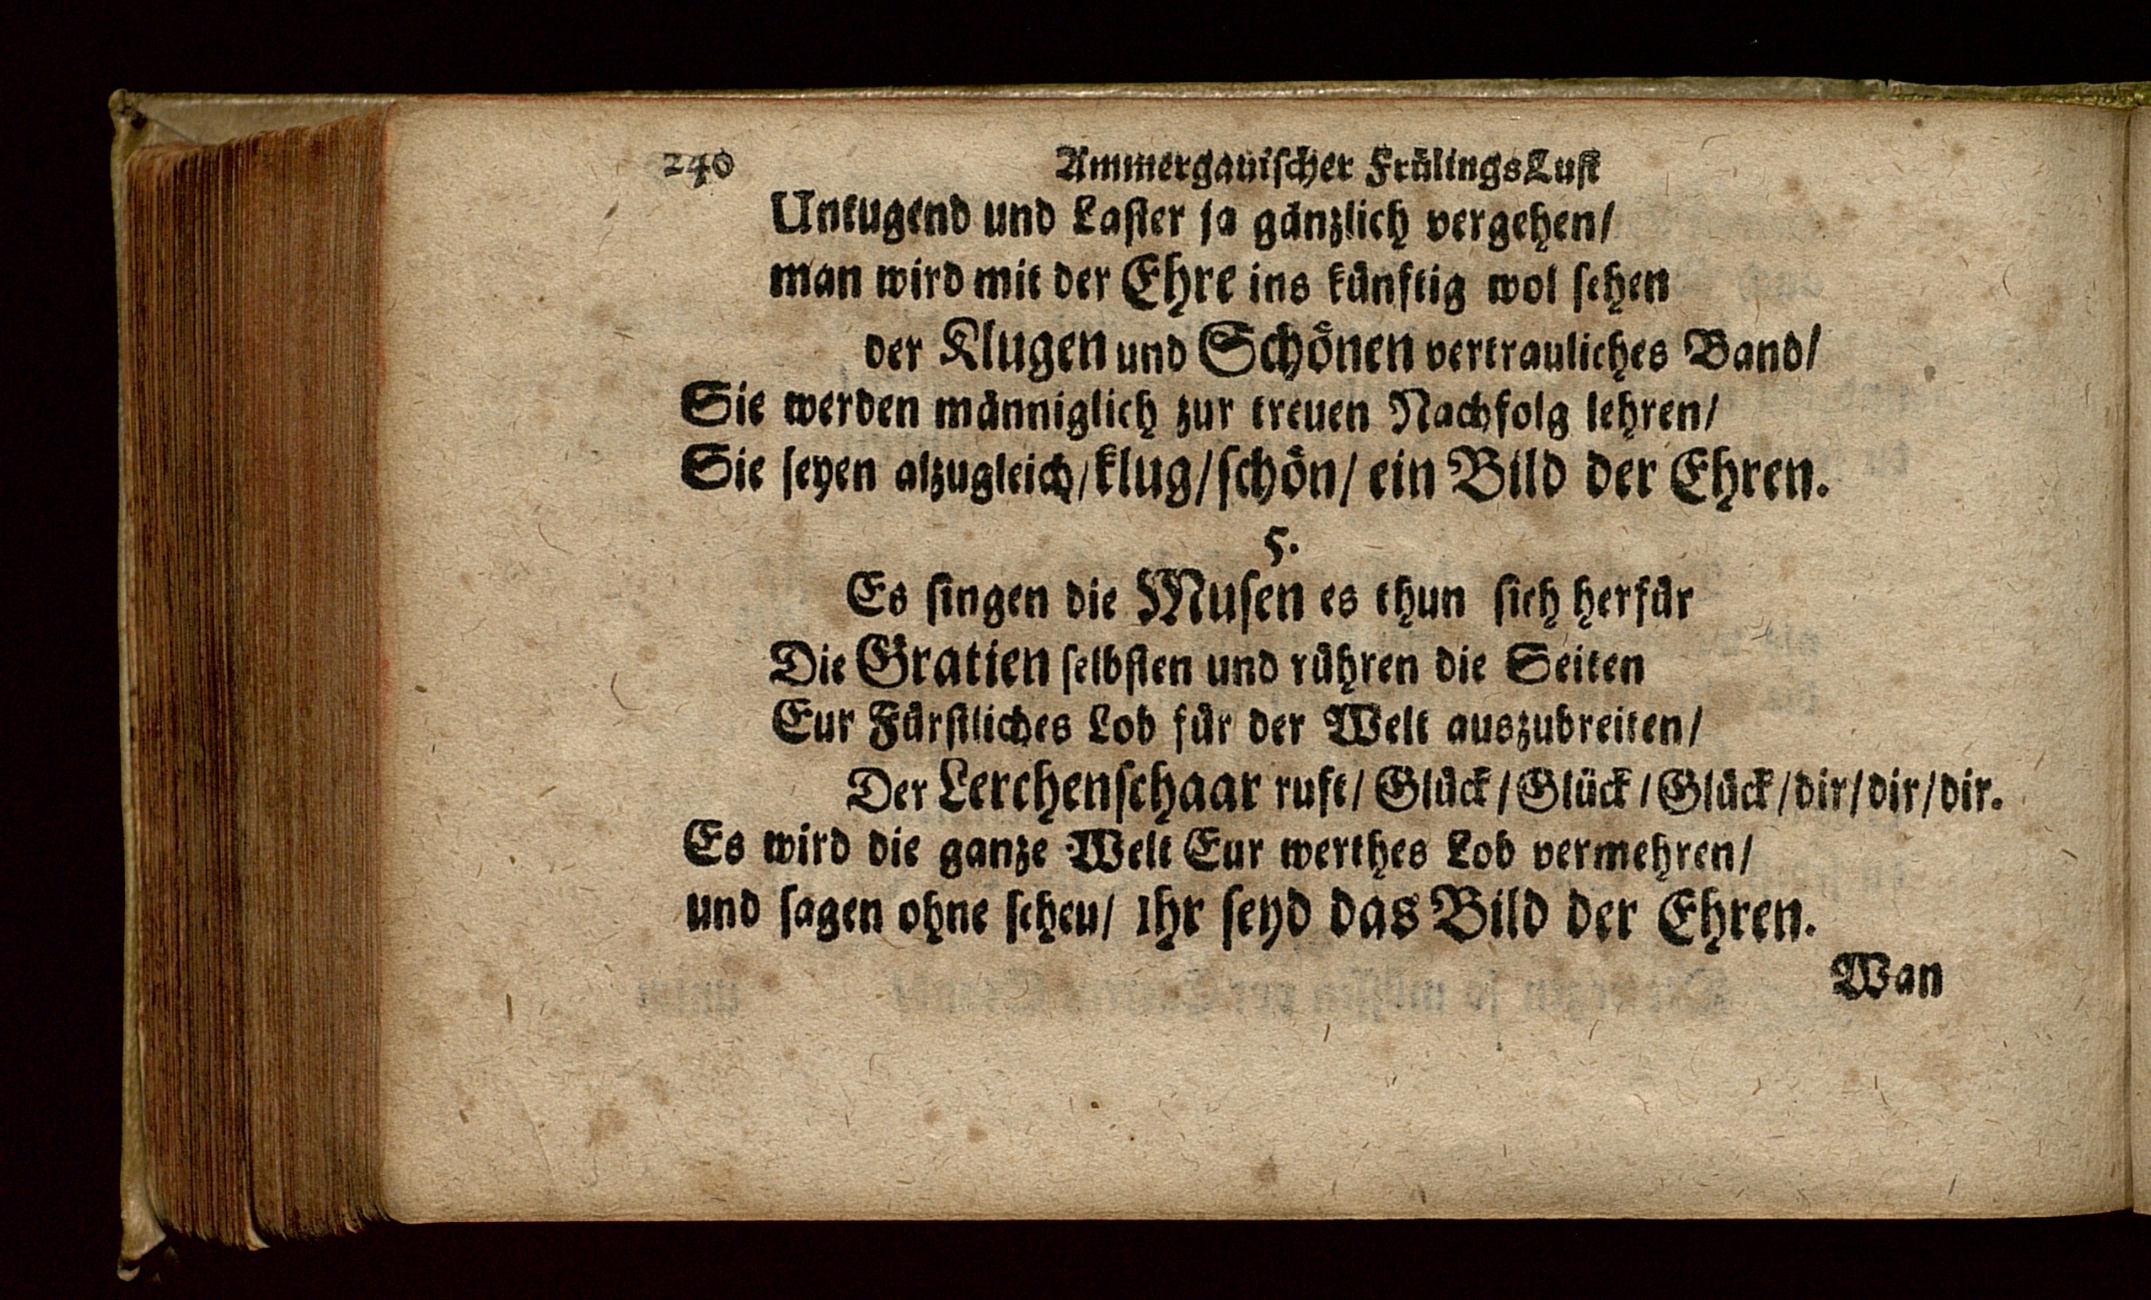 240 Ammergauiſcher FrülingsLuſt
Untugend und Laſter ja gänzlich vergehen/
man wird mit der Ehre ins künftig wol ſehen
der Klugen und Schönen vertrauliches Band/
Sie werden männiglich zur treuen Nachfolg lehren/
Sie ſeyen alzugleich/klug/ſchön/ ein Bild der Ehren.
5.
Es ſingen die Muſen es thun ſich herfür
Die Gratien ſelbſten und rühren die Seiten
Eur Fürſtliches Lob für der Welt auszubreiten/
Der Lerchenſchaar ruft/ Glück/Glück/Glück/dir/dir/dir.
Es wird die ganze Welt Eur werthes Lob vermehren/
und ſagen ohne ſcheu/ Ihr ſeyd das Bild der Ehren.
Wan